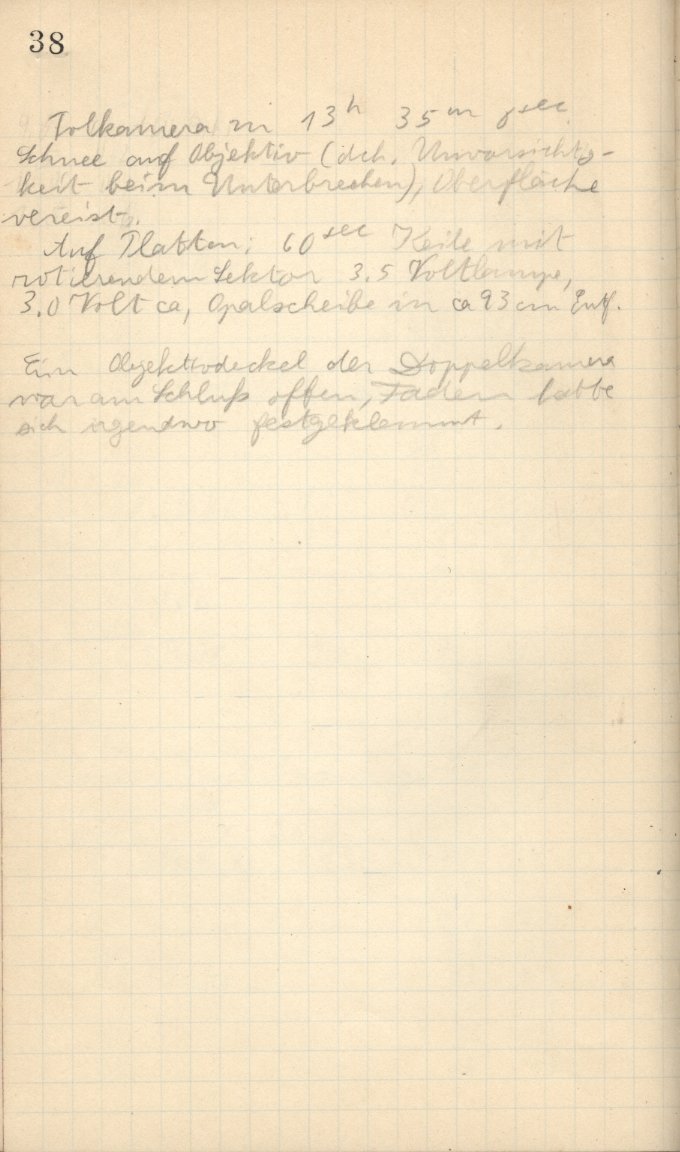 38
Polkamera in 13h 35m 0sec.
Schnee auf Objektiv (dch. Unvorsichtig-
keit beim Unterbrechen), Oberfläche
vereist.
Auf Platten: 60sec Keile mit
rotierendem Sektor 3.5 Voltlampe,
3.0 Volt ca, Opalscheibe in ca 93 cm Entf.
Ein Objektivdeckel der Doppelkamera
war am Schluß offen, Faden hatte
sich irgendwo festgeklemmt.